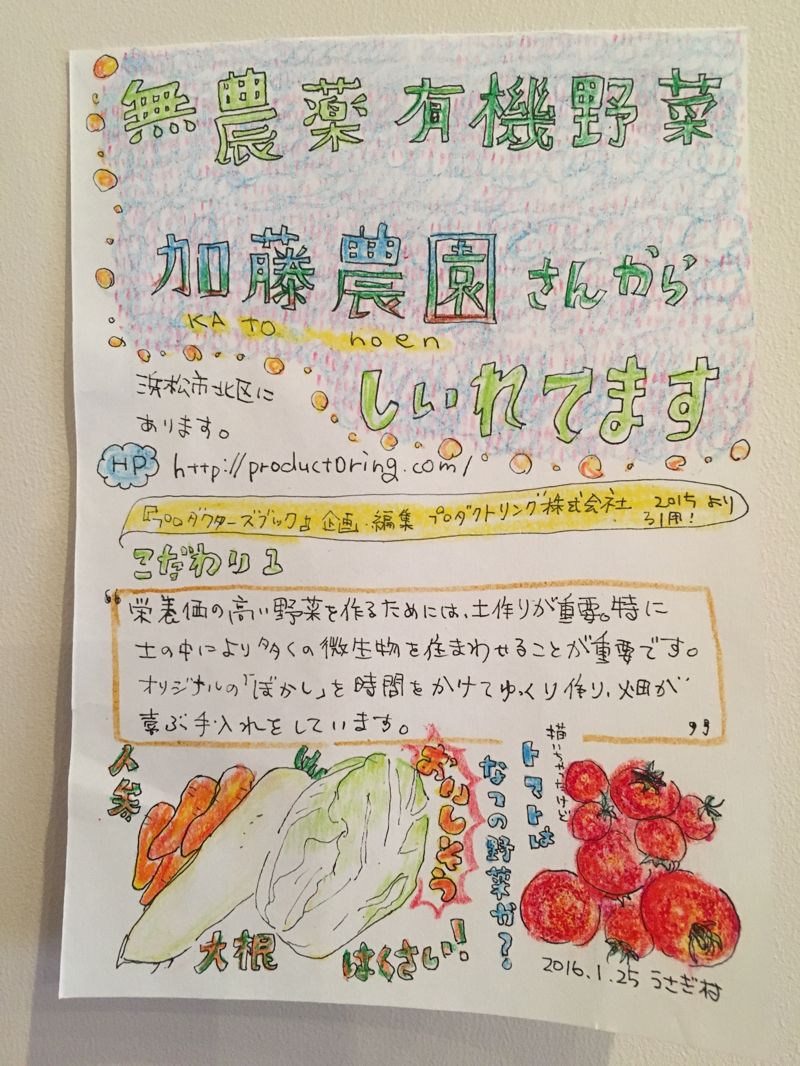 無農薬 有機野菜
加藤農園さんから
KA TO noen
しいれてます
浜松市北区に
あります。
HP http://productoring.com/
『プロダクターズブック』企画・編集 プロダクトリング株式会社 2015より
引用!
こだわり1
“栄養価の高い野菜を作るためには、土作りが重要。特に
土の中により多くの微生物を住まわせることが重要です。
オリジナルの「ぼかし」を時間をかけてゆっくり作り、畑が
喜ぶ手入れをしています。”
人参
大根
はくさい!
おいしそう
なつの野菜か?
トマトは
描いちゃったけど
2016.1.25 うさぎ村